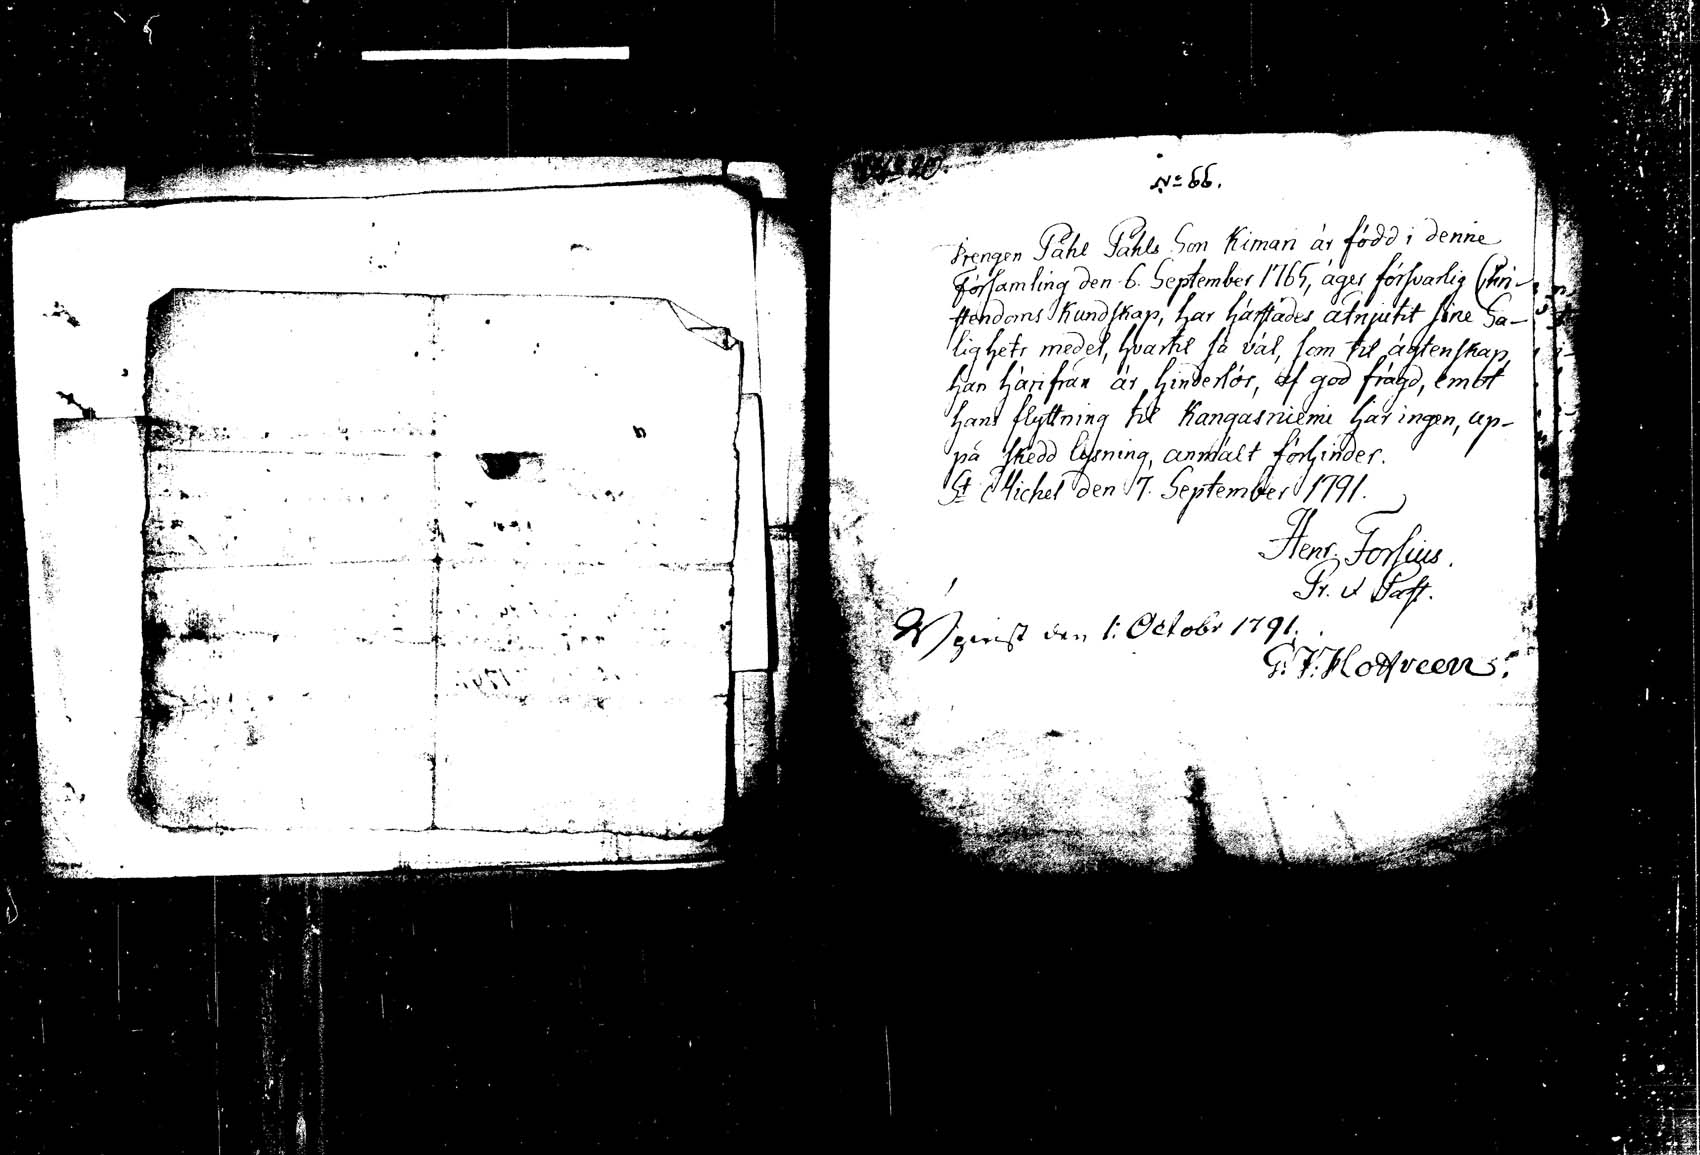 No 66.
Drengen Påhl Påhls Son Kiman är född i denne
Församling den 6. September 1765, äger försvarlig Chri-
stendoms Kundskap, har härstädes åtnjutit sine Sa-
lighets medel, hvartil så väl, som til ägtenskap,
han härifrån är hinderlös, af god frägd, emot
hans flyttning til Kangasniemi har ingen, up-
på skedd lysning, anmält förhinder.
St Michel den 7. September 1791.
Henr. Forsius.
Pr. & Past.
den 1. Octobr 1791.